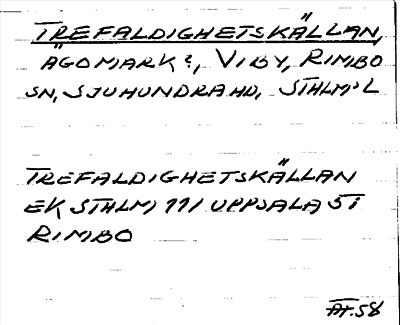 TREFALDIGHETSKÄLLAN,
ÄGOMARK?, VIBY, RIMBO
SN, SJUHUNDRA HD, STHLM'S L
TREFALDIGHETSKÄLLAN
EK STHLM 111 UPPSALA 5 i
RIMBO
AT.58